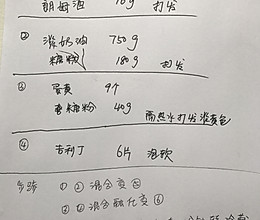 朗姆酒 10g 打发
② 淡奶油 750g
糖粉 180g 打发
③ 蛋黄 9个
香糖粉 40g
隔热水打发淡黄色
④ 吉利丁 6片 泡软
步骤 ① ② 混合变 ⑤
混合融化变 ⑥